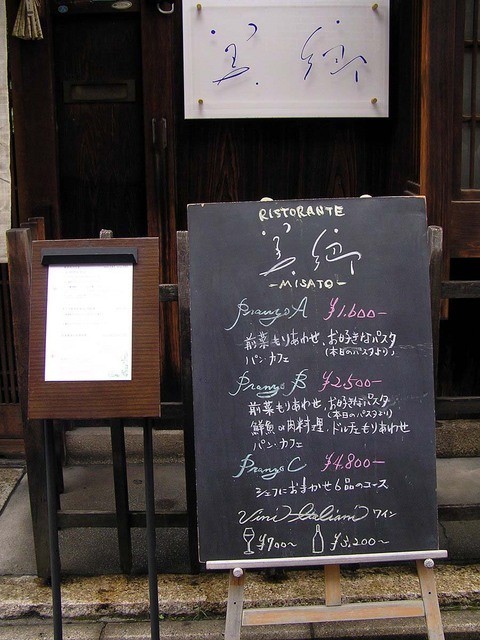 美郷
RISTORANTE
美郷
-MISATO-
Pranzo A ¥1,600-
前菜もりあわせ、お好きなパスタ
(本日のパスタより)
パン・カフェ
Pranzo B ¥2,500-
前菜もりあわせ、お好きなパスタ
(本日のパスタより)
鮮魚 or 肉料理、ドルチェもりあわせ
パン・カフェ
Pranzo C ¥4,800-
シェフにおまかせ6品のコース
Vini Italiani ワイン
¥700~ ¥3,200~